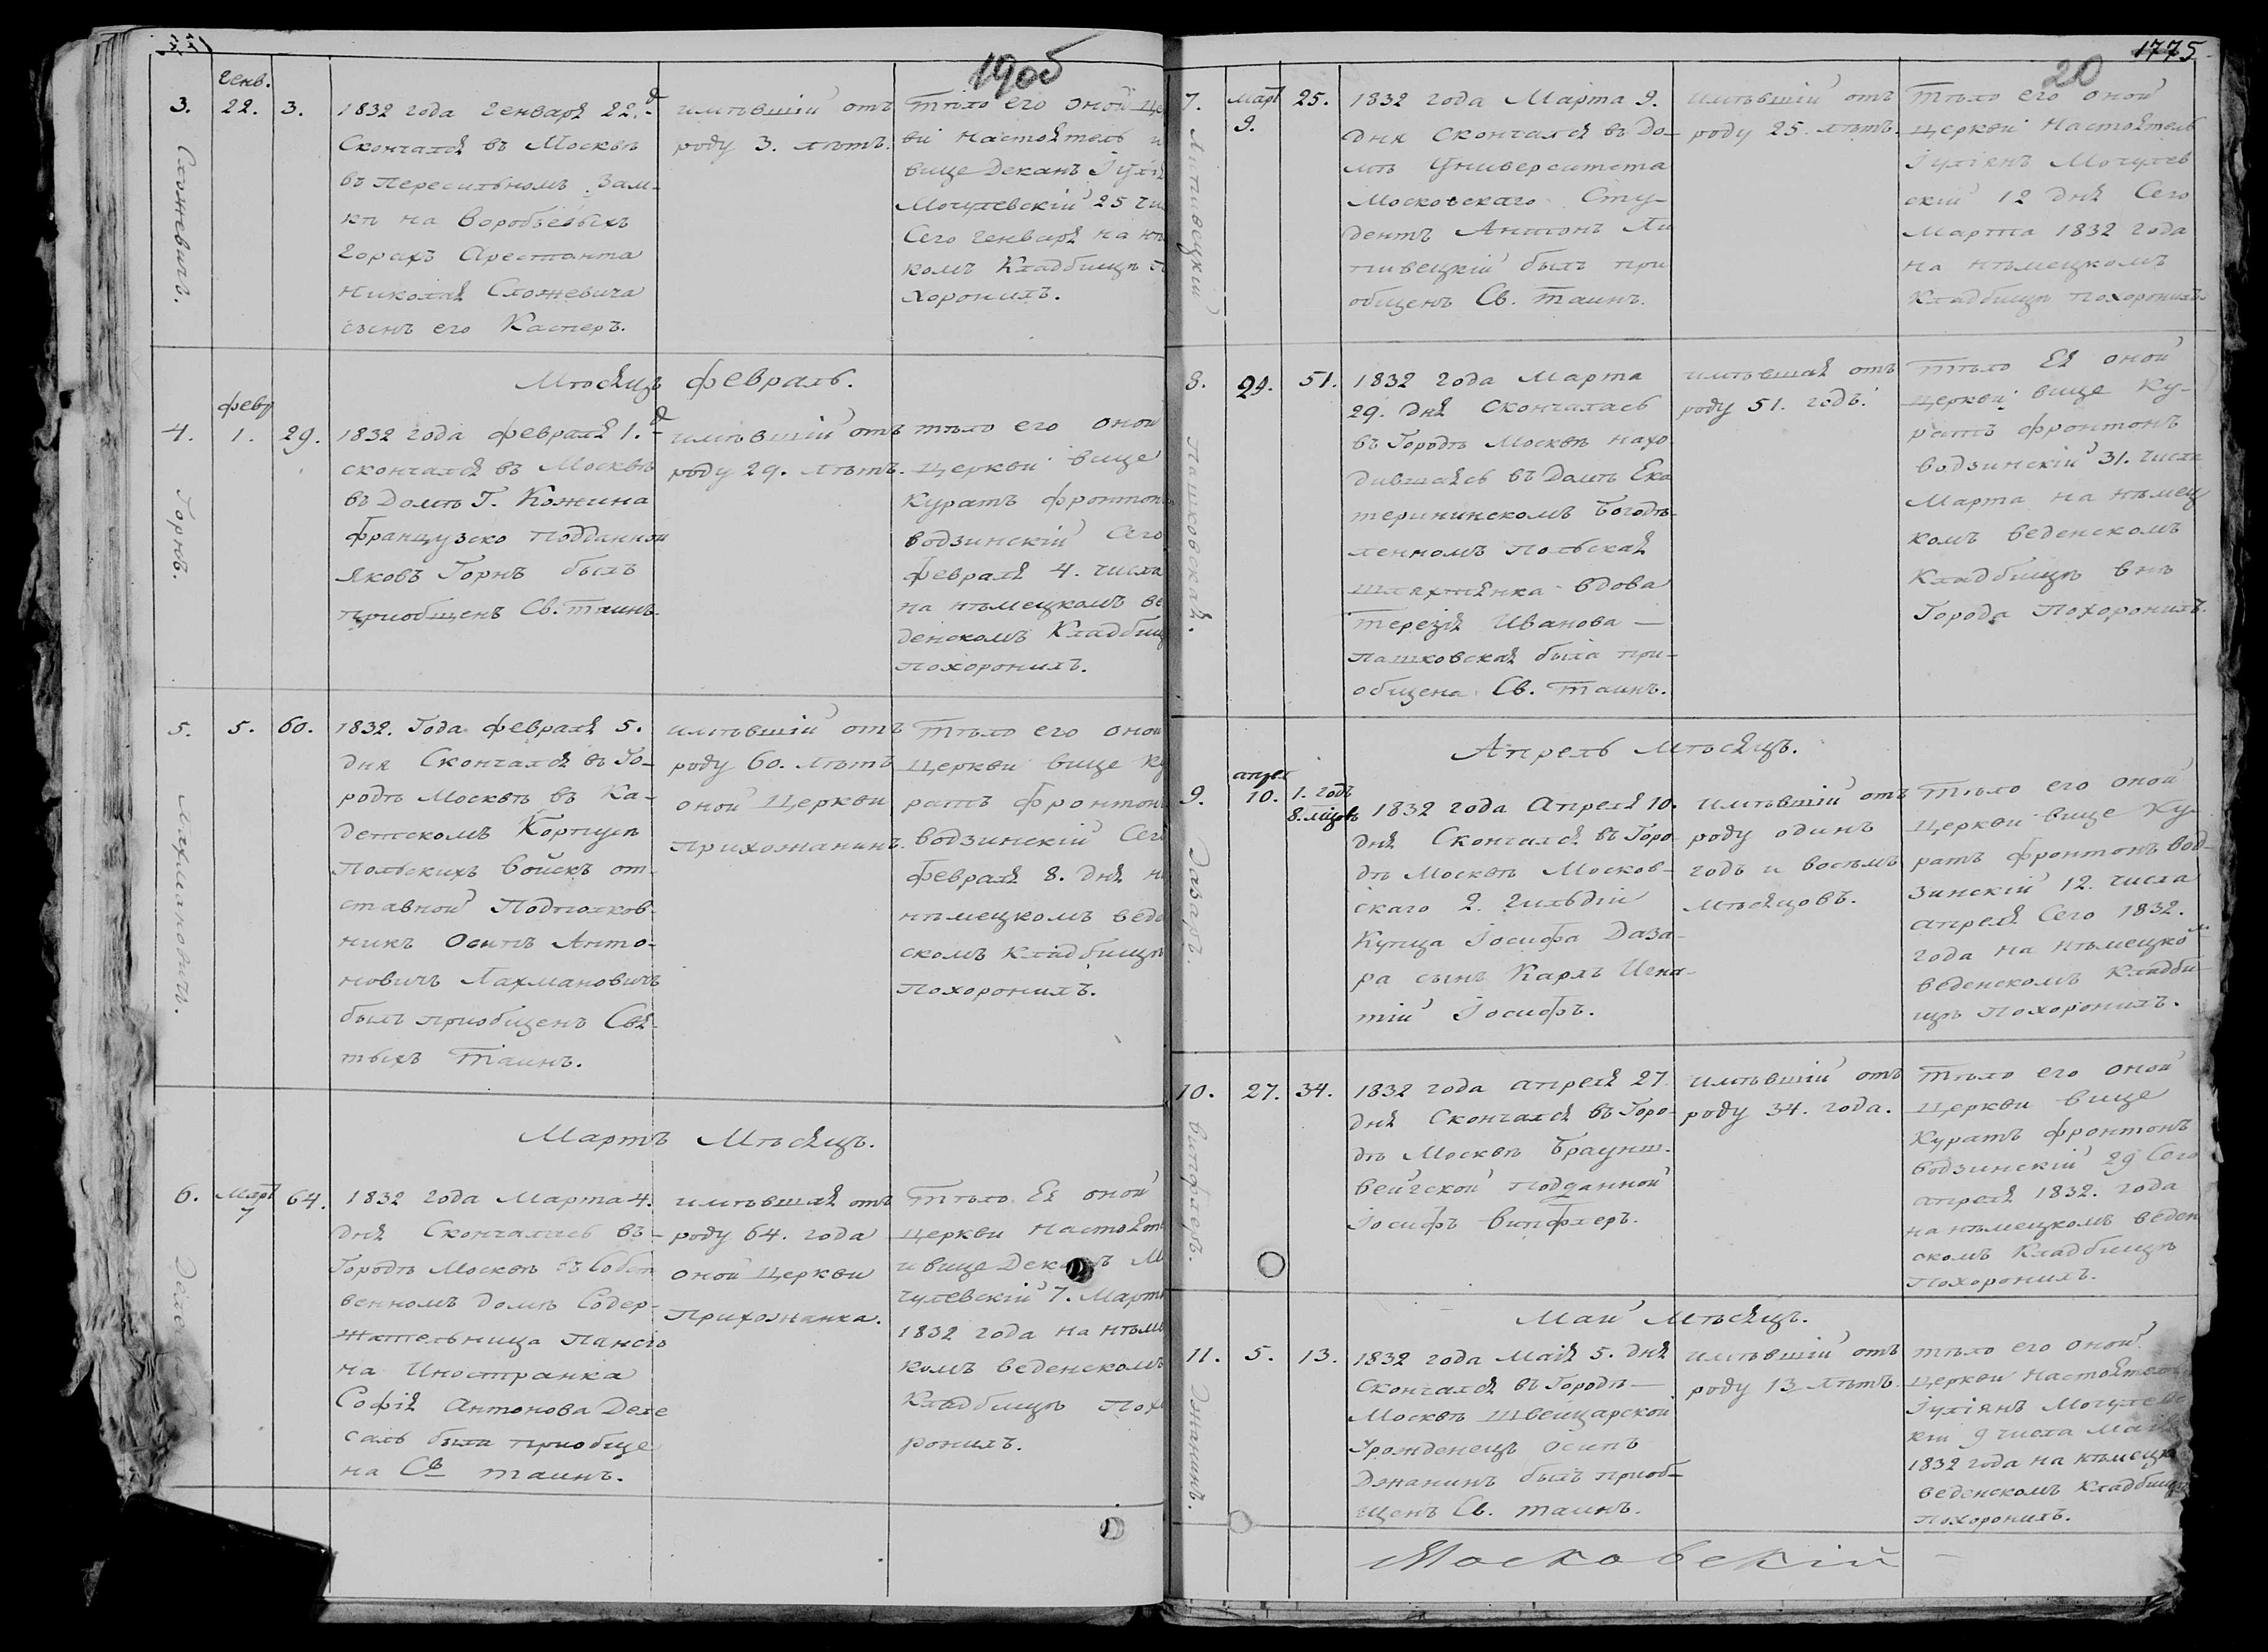 19об
3.
Генв.
22.
3.
Сложевичъ.
1832 года Генваря 22. д
Скончался въ Москвѣ
въ Пересильномъ Зам-
кѣ на Воробьевыхъ
Горахъ Арестанта
Николая Сложевича
сынъ его Касперъ.
имѣвшій отъ
роду 3. лѣтъ.
Тѣло его оной Це
ви Настоятель и
вице Деканъ Іулі
Мочулевскій 25 чи
Сего Генваря на нѣ
комъ Кладбищѣ п
хоронилъ.
Мѣсяцъ февраль.
4.
февр
1.
29.
Горнъ.
1832 года февраля 1. д
скончался въ Москвѣ
въ Домѣ Г. Кожина
французско подданной
Яковъ Горнъ былъ
приобщенъ Св. таинъ.
имѣвшій отъ
роду 29. лѣтъ.
тѣло его оной
церкви вице
Куратъ фронтон
водзинскій Сего
февраля 4. числа
на нѣмецкомъ ве
денскомъ Кладбищ
похоронилъ.
5.
5.
60.
Лахмановичъ.
1832. Года февраля 5.
дня Скончался въ Го-
родѣ Москвѣ въ Ка-
детскомъ Корпусѣ
Польскихъ войскъ от-
ставной Подполков-
никъ Осипъ Анто-
новичъ Лахмановичъ
былъ приобщенъ Свя-
тыхъ Таинъ.
имѣвшій отъ
роду 60. лѣтъ
оной Церкви
прихожанинъ.
Тѣло его оной
Церкви вице Ку
ратъ фронтон
водзинскій Сег
февраля 8. дня н
нѣмецкомъ веде
скомъ Кладбищѣ
Похоронилъ.
Мартъ Мѣсяцъ.
6.
Март
7
64.
1832 года Марта 4.
дня Скончалась въ
Городѣ Москвѣ въ Собст
венномъ домѣ Содер-
жательница Пансіо
на Иностранка
Софія Антонова Деле
саль была приобще
на Св таинъ.
имѣвшая отъ
роду 64. года
оной Церкви
Прихожанка.
Тѣло Ея оной
церкви Настоят
и вице Деканъ М
чулевскій 7. Март
1832 года на нѣме
комъ веденскомъ
Кладбищѣ Пох
ронилъ.
1775
20
7.
Март
9.
25.
Липивецкій
1832 года Марта 9.
дня скончался въ До-
мѣ Университета
Московскаго Сту-
дентъ Антонъ Ли
пивецкій былъ при
общенъ Св. таинъ.
имѣвшій отъ
роду 25. лѣтъ.
Тѣло его оной
церкви Настоятель
Іуліянъ Мочулев
скій 12 дня Сего
Марта 1832 года
на нѣмецкомъ
Кладбищѣ похоронилъ
8.
29.
51.
Пашковская.
1832 года Марта
29. дня скончалась
въ Городѣ Москвѣ нахо
дившаясь въ Домѣ Ека
терининскомъ Богодѣ-
ленномъ польская
шляхтянка вдова
Терезія Иванова —
Пашковская была при-
общена Св. таинъ.
имѣвшая отъ
роду 51. годъ.
Тѣло Ея оной
церкви вице Ку-
ратъ фронтонъ
водзинскій 31. числа
Марта на нѣмец
комъ веденскомъ
Кладбищѣ внѣ
Города Похоронилъ.
Апрель мѣсяцъ.
9.
апрел
10.
1. годъ
8. мѣцовъ
Дазаръ.
1832 года Апреля 10.
дня Скончался въ Горо-
дѣ Москвѣ Москов-
скаго 2. Гильдіи
Купца Іосифа Даза-
ра сынъ Карлъ Игна-
тій Іосифъ.
имѣвшій отъ
роду одинъ
годъ и восемь
мѣсяцовъ.
Тѣло его оной
Церкви вице Ку-
ратъ фронтонъ вод-
зинскій 12. числа
апреля Сего 1832.
года на нѣмецком
веденскомъ Кладби-
щѣ Похоронилъ.
10.
27.
34.
Випфлеръ.
1832 года апреля 27
дня Скончался въ Горо-
дѣ Москвѣ Брауншь-
вейгской подданной
Іосифъ Випфлеръ.
имѣвшій отъ
роду 34. года.
Тѣло его оной
Церкви вице
Куратъ фронтонъ
водзинскій 29 Сего
апреля 1832. года
на нѣмецкомъ веден
скомъ Кладбищѣ
Похоронилъ.
Май Мѣсяцъ.
11.
5.
13.
Джанинъ.
1832 года Мая 5. дня
Скончался въ Городѣ —
Москвѣ Швейцарской
Урожденецъ Осипъ
Джанинъ былъ приоб-
щенъ Св. таинъ.
имѣвшій отъ
роду 13 лѣтъ.
тѣло его оной
церкви Настоятель
Іуліянъ Мочулевс
кій 9 числа Мая
1832 года на нѣмецко
веденскомъ Кладбищѣ
Похоронилъ.
Московскій